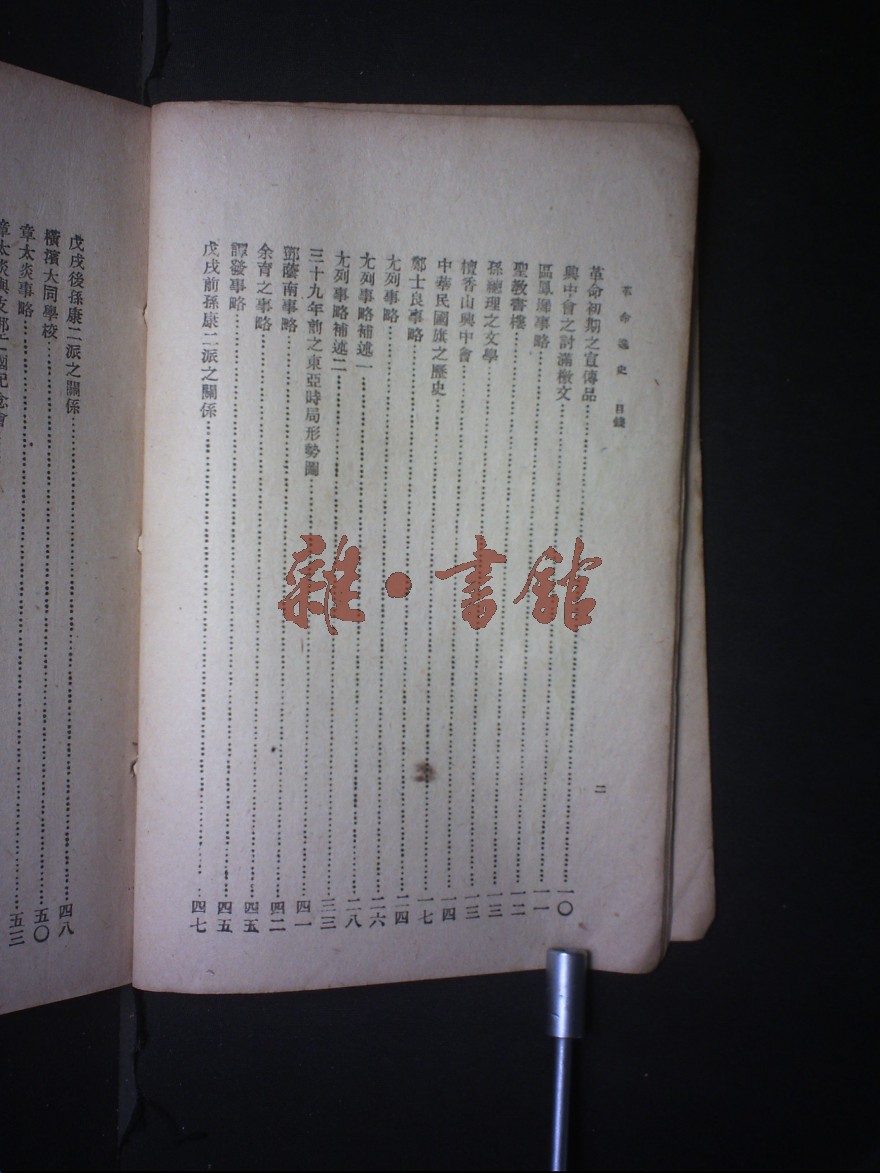 革命逸史 目錄
二
革命初期之宣傳品 一〇
興中會之討滿檄文 一一
區鳳墀事略 一二
聖教書樓 一三
孫總理之文學 一三
檀香山興中會 一四
中華民國旗之歷史 一七
鄭士良事略 二四
尢列事略 二六
尢列事略補述一 二八
尢列事略補述二 三三
三十九年前之東亞時局形勢圖 四一
鄧蔭南事略 四二
余育之事略 四五
譚發事略 四五
戊戌前孫康二派之關係 四七
戊戌後孫康二派之關係 四八
橫濱大同學校 五〇
章太炎事略 五三
章太炎與支那亡國紀念會
雜·書館